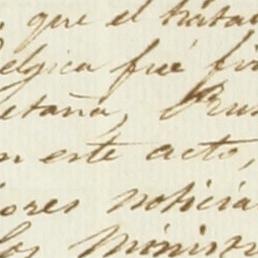 , que el trata
elgica fué fir
etaña, Rus
n este acto,
ores noticia
los Minist